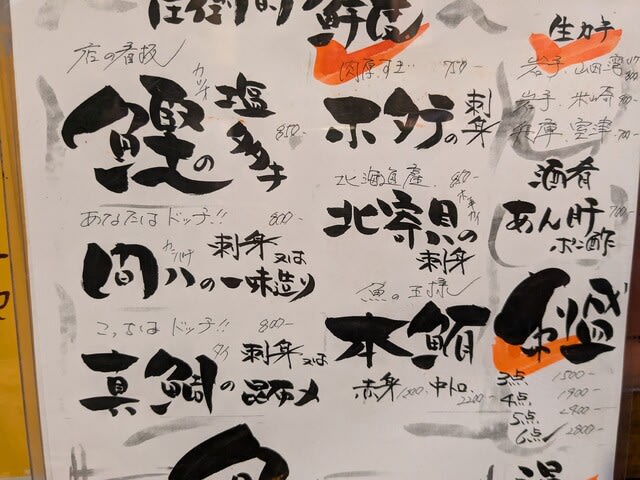 生カキ
店の看板
肉厚すぎ 750-
岩手、山田湾
岩手、米崎
兵庫、室津 700-
カツオ
鰹の塩タタキ 850-
ホタテの刺身
北海道産 850-
北寄貝の刺身
ホッキガイ
酒肴
あん肝ポン酢 700-
あなたはドッチ!! 800-
カンパチ
間八の刺身又は一味造り
魚の王様
本鮪
赤身 中トロ 2200-
こっちはドッチ!! 800-
タイ
真鯛の刺身又は昆布〆
刺盛
3点 1500-
4点 1900-
5点 2400-
6点 2800-